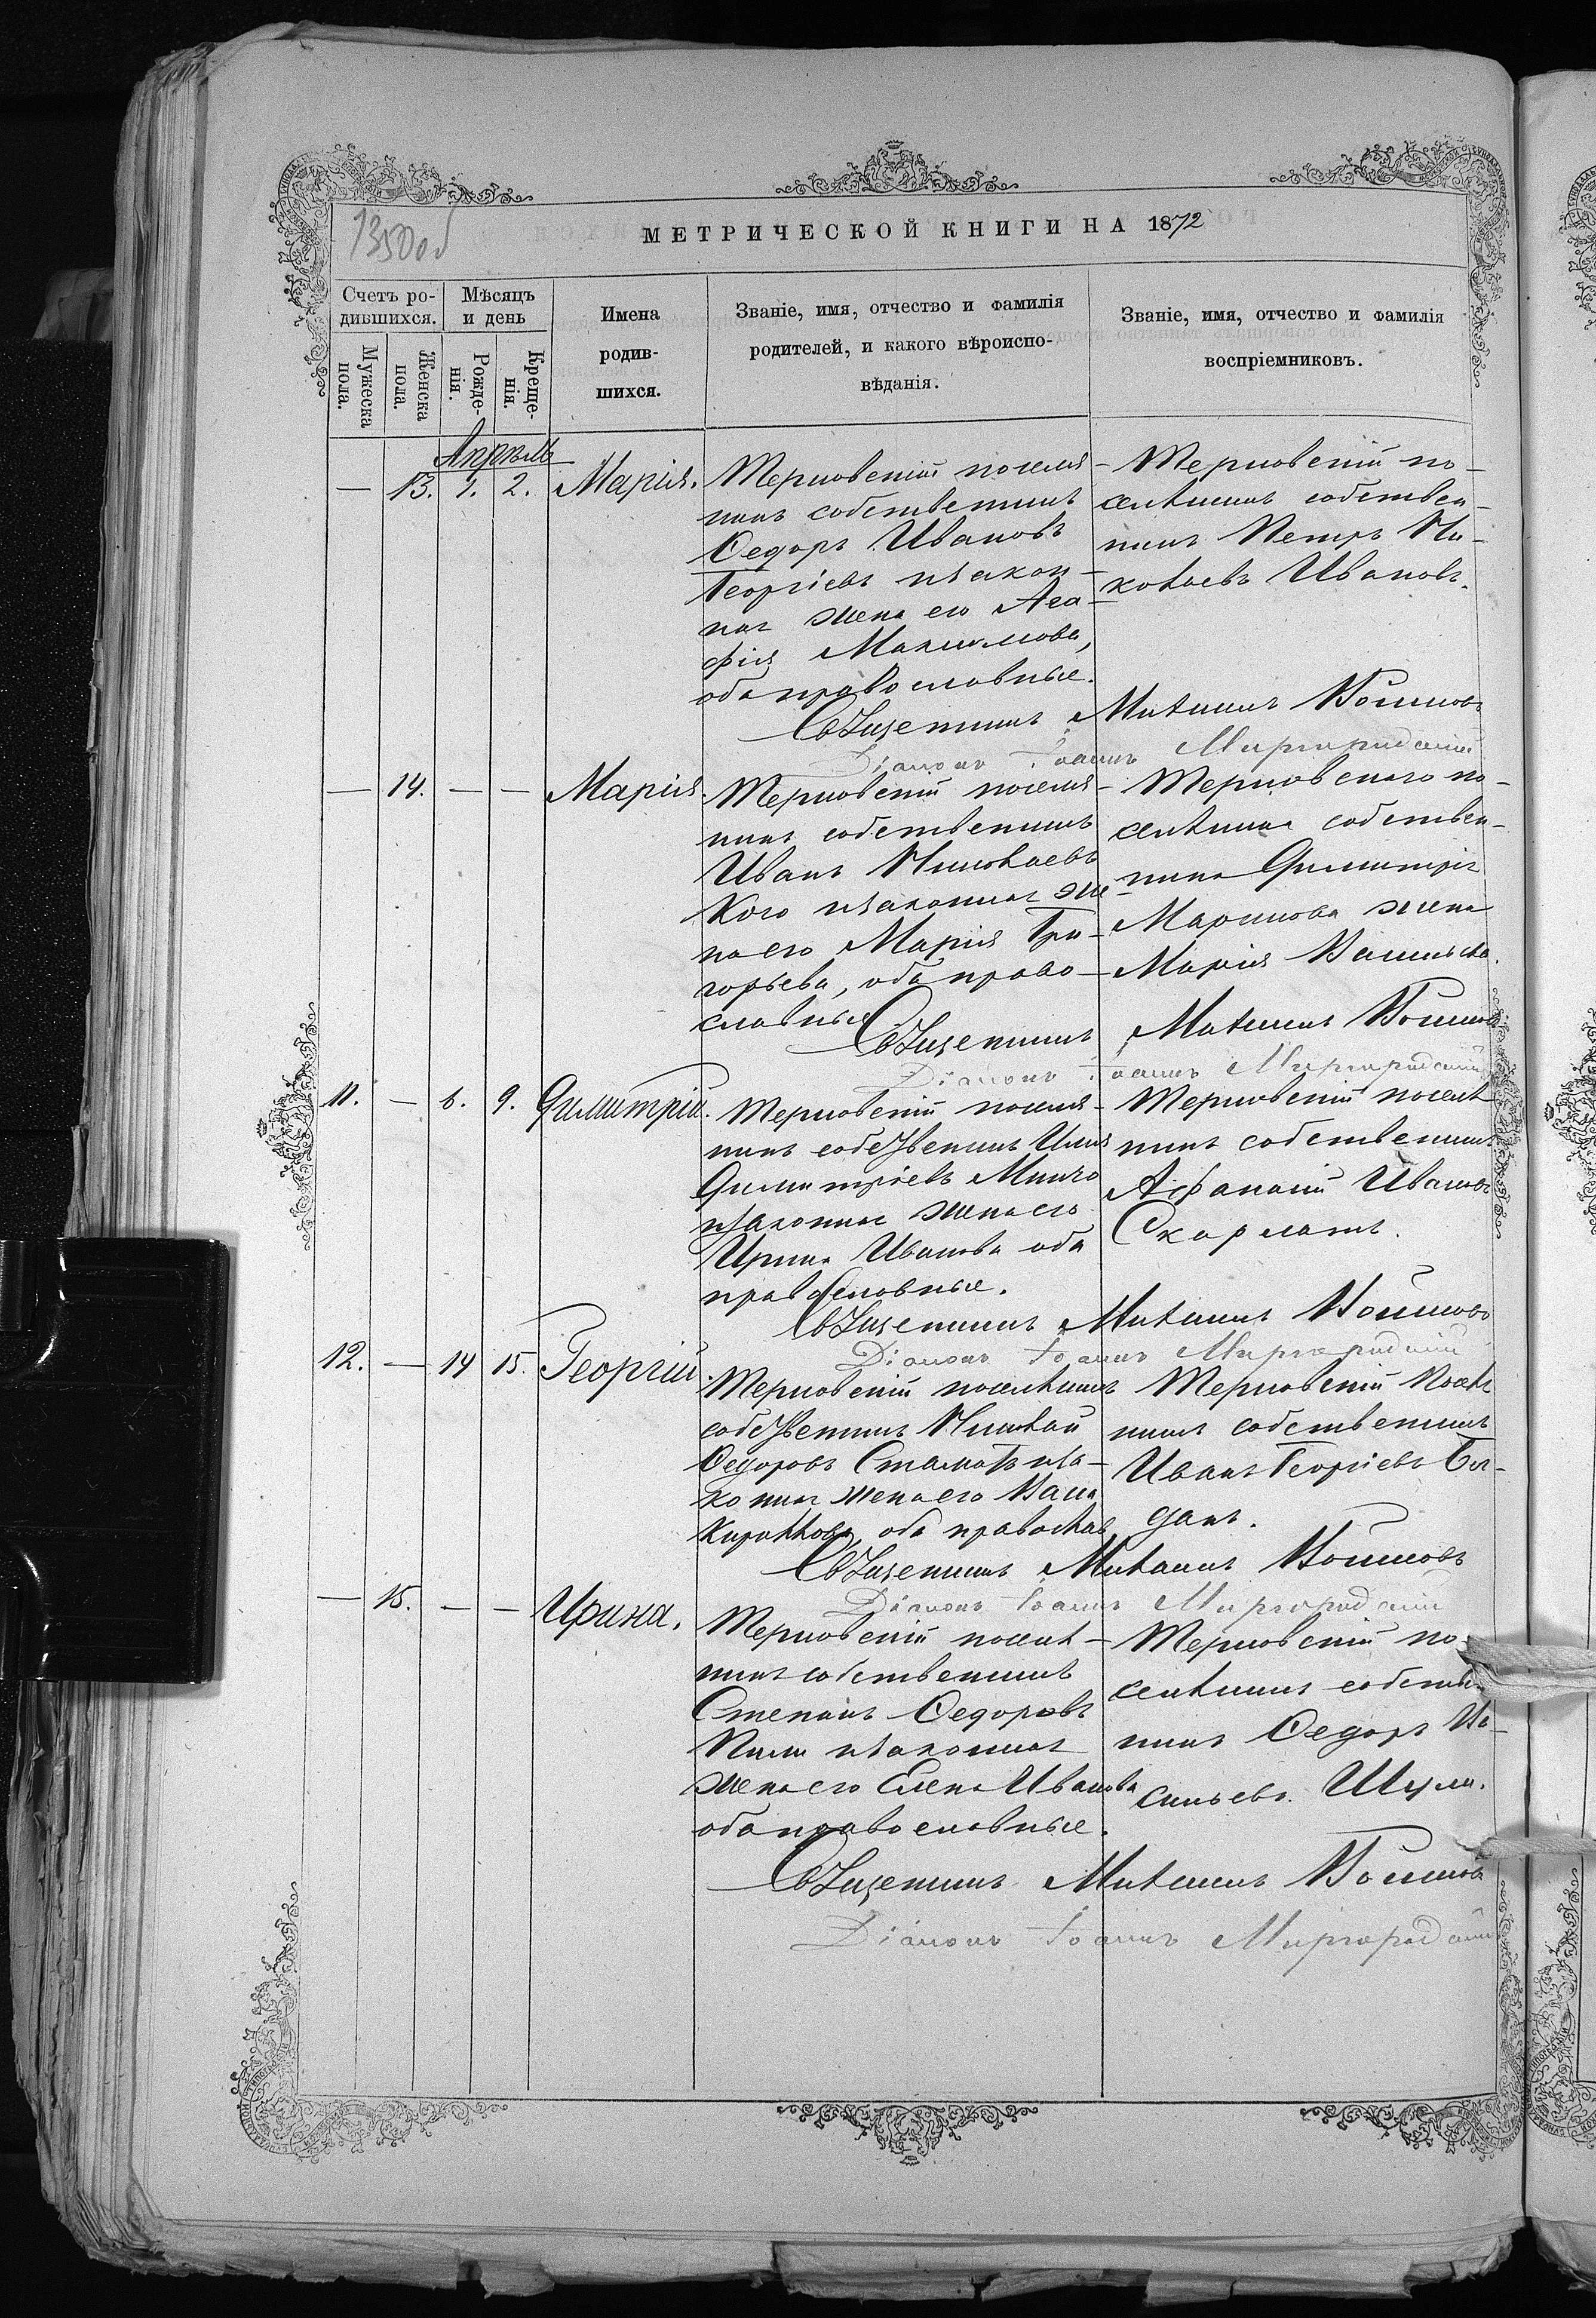 1350об
МЕТРИЧЕСКОЙ КНИГИ НА 1872
Счетъ ро-
дившихся.
Мужеска
пола.
Женска
пола.
Мѣсяцъ
и день
Рожде-
нія.
Креще-
нія.
Имена
родив-
шихся.
Званіе, имя, отчество и фамилія
родителей, и какого вѣроиспо-
вѣданія.
Званіе, имя, отчество и фамилія
воспріемниковъ.
Апрѣль
— 13. 1. 2. Марія.
Терновскій поселя-
нинъ собственникъ
Ѳедоръ Ивановъ
Георгіевъ и закон-
ная жена его Ага-
фія Максимова,
оба православные.
Терновскій по-
селянинъ собствен-
никъ Петръ Ни-
колаевъ Ивановъ.
Священникъ Михаилъ
Діаконъ Іоаннъ Миргородскій
— 14. — — Марія.
Терновскій поселя-
нинъ собственникъ
Иванъ Николаевъ
Кого и законная же-
на его Марія Гри-
горьева, оба право-
славные.
Терновского по-
селянина собствен-
ника Димитрія
Маринова жена
Марія Васильева.
Священникъ Михаилъ
Діаконъ Іоаннъ Миргородскій
11. — 6. 9. Димитрій.
Терновскій поселя-
нинъ собственникъ Илія
Димитріевъ Минчо
и законная жена его
Ирина Иванова оба
православные.
Терновскій поселя
нинъ собственникъ
Афанасій Ивановъ
Скарлатъ.
Священникъ Михаилъ
Діаконъ Іоаннъ Миргородскій
12. — 14 15. Георгій.
Терновскій поселянинъ
собственникъ Николай
Ѳедоровъ Стаматъ и за-
конная жена его Васса
Кириллова, оба православ
Терновскій поселя
нинъ собственникъ
Иванъ Георгіевъ Бл-
данъ.
Священникъ Михаилъ
Діаконъ Іоаннъ Миргородскій
— 15. — — Ирина.
Терновскій поселя-
нинъ собственникъ
Степанъ Ѳедоровъ
Пили и законная
жена его Елена Иванова
оба православные.
Терновскій по-
селянинъ собствен
никъ Ѳедоръ Ва-
сильевъ Шули.
Священникъ Михаилъ
Діаконъ Іоаннъ Миргородскій